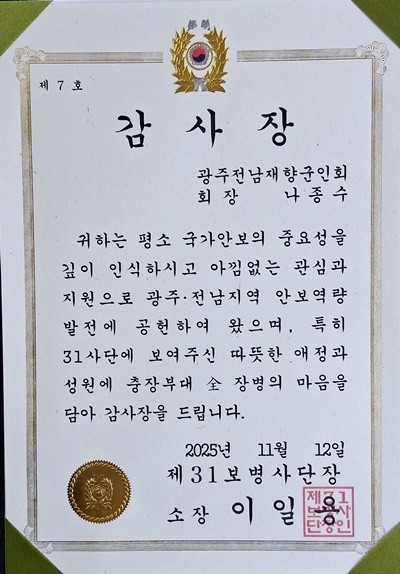 제 7 호
감 사 장
광주전남재향군인회
회 장 나 종 수
귀하는 평소 국가안보의 중요성을
깊이 인식하시고 아낌없는 관심과
지원으로 광주·전남지역 안보역량
발전에 공헌하여 왔으며, 특히
31사단에 보여주신 따뜻한 애정과
성원에 충장부대 全 장병의 마음을
담아 감사장을 드립니다.
2025년 11월 12일
제31보병사단장
소장 이 일 용
제31
보병사
단장인